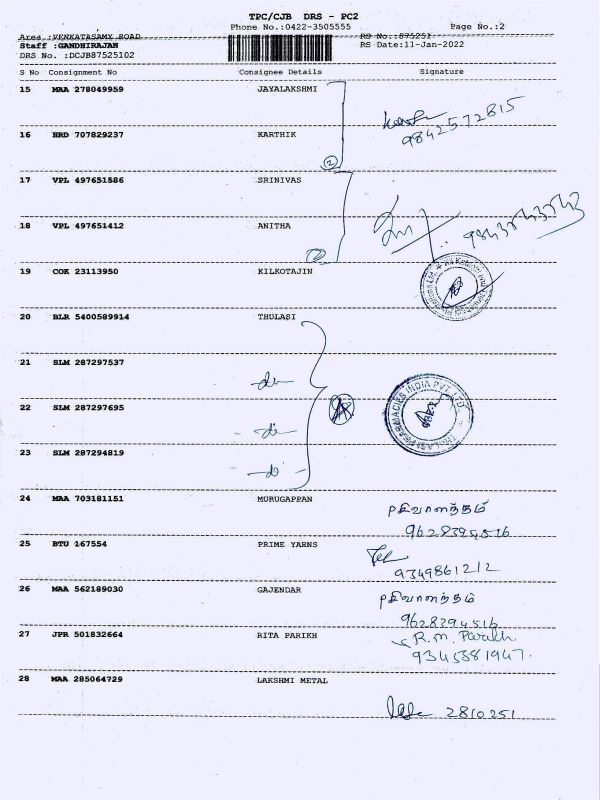 TPC/CJB DRS - PC2
Phone No.:0422-3505555 Page No.:2
Area :VENKATASAMY ROAD RS No.:875251
Staff :GANDHIRAJAN RS Date:11-Jan-2022
DRS No. :DCJB87525102
S No Consignment No Consignee Details Signature
15 MAA 278049959 JAYALAKSHMI
9842572815
16 HRD 707829237 KARTHIK
2
17 VPL 497651586 SRINIVAS
18 VPL 497651412 ANITHA
19 COK 23113950 KILKOTAJIN
20 BLR 5400589914 THULASI
21 SLM 287297537
22 SLM 287297695
PHARMACIES INDIA PVT. LTD.
23 SLM 287294819
24 MAA 703181151 MURUGAPPAN
9628394516
25 BTU 167554 PRIME YARNS
9349861212
26 MAA 562189030 GAJENDAR
9628394516
27 JPR 501832664 RITA PARIKH R.M. Parikh
9345881947.
28 MAA 285064729 LAKSHMI METAL
2810251